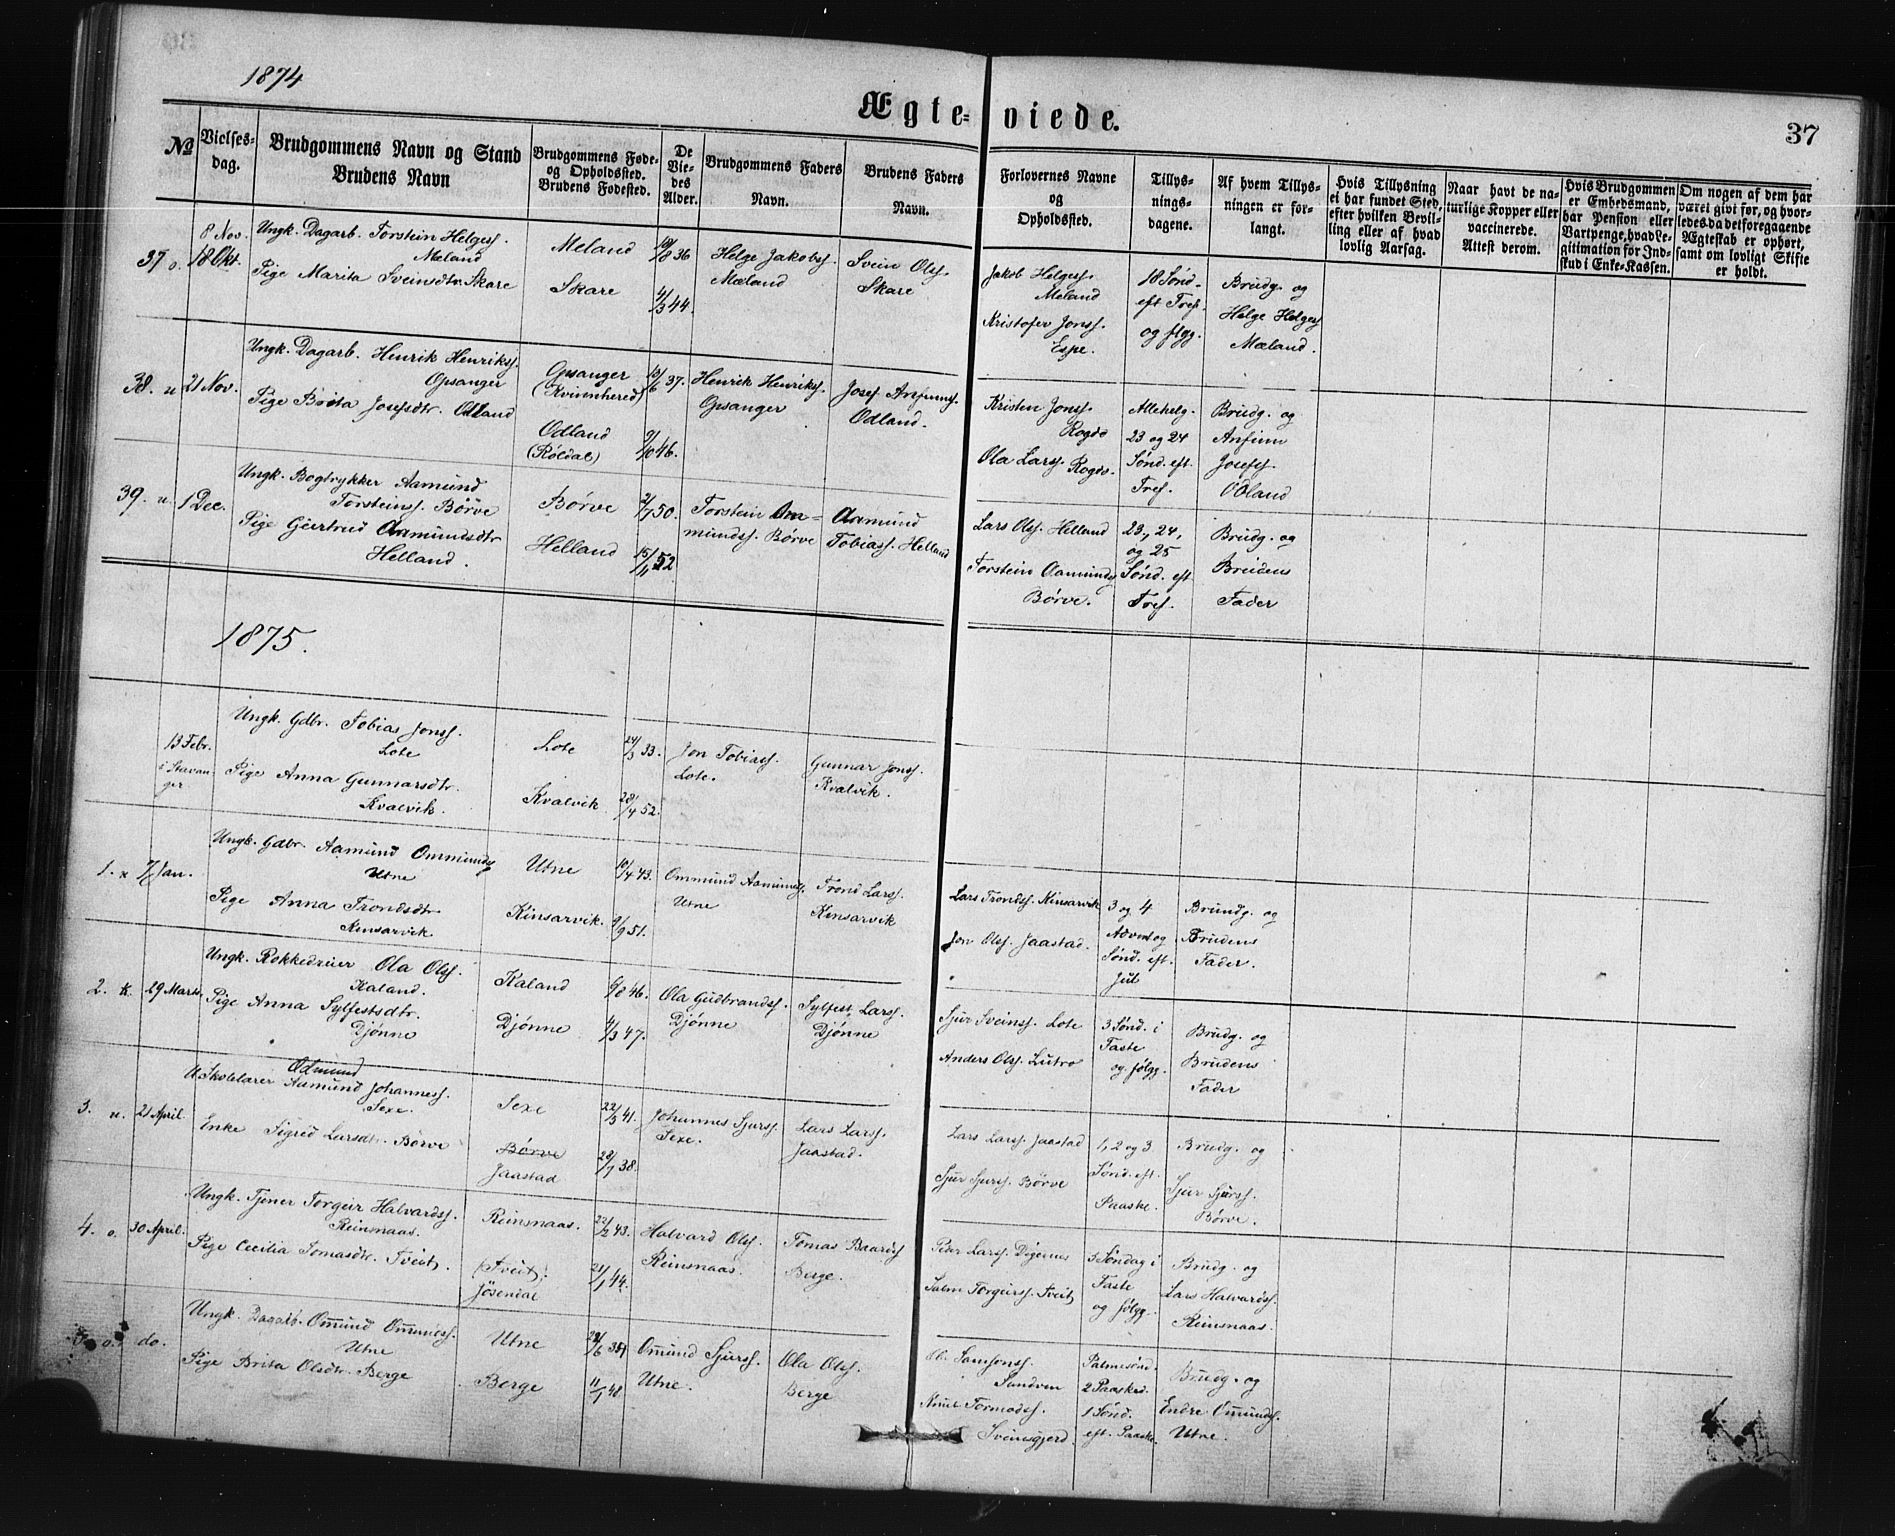 1874
Ægte-viede.
37
№
Vielses-
dag.
Brudgommens Navn og Stand
Brudens Navn
Brudgommens Føde-
og Opholdssted.
Brudens Fødested.
De
Vie-
des
Alder.
Brudgommens Faders
Navn.
Brudens Faders
Navn.
Forlovernes Navne
og
Opholdssted.
Tillys-
nings-
dagene.
Af hvem Tillys-
ningen er for-
langt.
Hvis Tillysning
ei har fundet Sted,
efter hvilken Bevil-
ling eller af hvad
lovlig Aarsag.
Naar havt de na-
turlige Kopper eller
vaccinerede.
Attest derom.
Hvis Brudgommen
er Embedsmand,
har Pension eller
Vartpenge, hvad Le-
gitimation for Ind-
skud i Enke-Kassen.
Om nogen af dem har
været givt før, og hvor-
ledes da det foregaaende
Ægteskab er ophørt,
samt om lovligt Skifte
er holdt.
37 o.
8 Nov.
18 Okt.
Ungk. Dagarb. Torstein Helgess.
Meland
Pige Marita Sveinsdtr. Skare
Meland
Skare
19/8 36
4/3 44.
Helge Jakobs.
Mæland
Svein Ols.
Skare
Jakob Helgess.
Meland
Kristofer Jonss.
Espe.
18 Sønd.
eft Tref.
og flgg.
Brudg. og
Helge Helges
Mæland.
38. u
21 Nov.
Ungk. Dagarb. Henrik Henrikss.
Opsanger
Pige Brita Josefsdtr. Odland
Opsanger
(Kvinnhered)
Odland
(Røldal)
15/6 37.
9/10 46.
Henrik Henrikss.
Opsanger
Josef Anfinns.
Odland.
Kristen Jonss.
Rogde
Ola Larss. Rogde.
Allehelg.
23 og 24
Sønd. eft.
Tref.
Brudg. og
Anfinn
Josefs.
Odland
39. u.
1 Dec.
Ungk. Bogtrykker Aamund
Torsteins. Børve
Pige Gjertrud Aamundsdtr
Helland.
Børve
Helland
2/7 50.
15/11 52
Torstein Aa-
munds. Børve
Aamund
Tobiass. Helland
Lars Ols. Helland
Torstein Aamunds
Børve.
23., 24,
og 25
Sønd. eft
Tref.
Brudg. og
Brudens
Fader
1875.
13 Febr.
i Stavan-
ger
Ungk. Gdbr. Tobias Jonss.
Lote
Pige Anna Gunnarsdtr.
Kvalvik.
Lote
Kvalvik
24/3 33.
28/4 52.
Jon Tobiass.
Lote.
Gunnar Jonss.
Kvalvik.
1. u
7 Jan.
Ungk. Gdbr. Aamund Ommunds
Utne
Pige Anna Trondsdtr.
Kinsarvik
Utne
Kinsarvik.
10/4 43.
9/9 51.
Ommund Aamunds.
Utne
Trond Larss.
Kinsarvik
Lars Tronds. Kinsarvik
Jon Ols. Jaastad.
3 og 4
Advent og
Sønd. eft.
Jul
Brudg. og
Brudens
Fader.
2. K.
29 Marts.
Ungk. Rokkedreier Ola Ols.
Kaland.
Pige Anna Sylfestsdtr.
Djønne
Kaland
Djønne
6/8 46.
4/3 47.
Ola Gudbrands.
Djønne
Sylfest Larss.
Djønne
Sjur Sveinss. Lote
Anders Ols. Lutro
3 Sønd. i
Faste
og følgg.
Brudg. og
Brudens
Fader
3. u.
21 April.
Odmund
U. Skolelærer Aamund Johanness.
Sexe.
Enke Sigrid Larsdtr. Børve
Sexe
Børve
Jaastad
22/3 41.
28/7 38.
Johannes Sjurss.
Sexe.
Lars Larss.
Jaastad.
Lars Larss. Jaastad
Sjur Sjurss. Børve
1, 2 og 3
Sønd. eft.
Paaske.
Brudg. og
Sjur Sjurss.
Børve.
4. o.
30 April.
Ungk. Tjener Torgeir Halvards.
Reinsnaas.
Pige Cecilia Tomasdtr. Tveit.
Reinsnaas.
(Tveit)
Jøsendal
22/2 43.
21/1 44.
Halvard Ols.
Reinsnaas.
Tomas Baards
Berge.
Peder Larss. Digernes
Salm. Torgeirss. Tveit
3 Søndag i
Faste
og følgg.
Brudg. og
Lars Halvards.
Reinsnaas.
o. do.
Ungk. Dagarb. Omund Omunds.
Utne
Pige Brita Olsdtr. Berge
Utne
Berge
11/1 48
Omund Sjurss.
Utne.
Ola Ols.
Berge
Samsons.
Sandven
Tormods.
Sveinsgjerd.
Palmesønd.
2 Paasked.
1 Sønd.
eft. Paaske.
Brudg. og
Endre Omunds.
Utne.